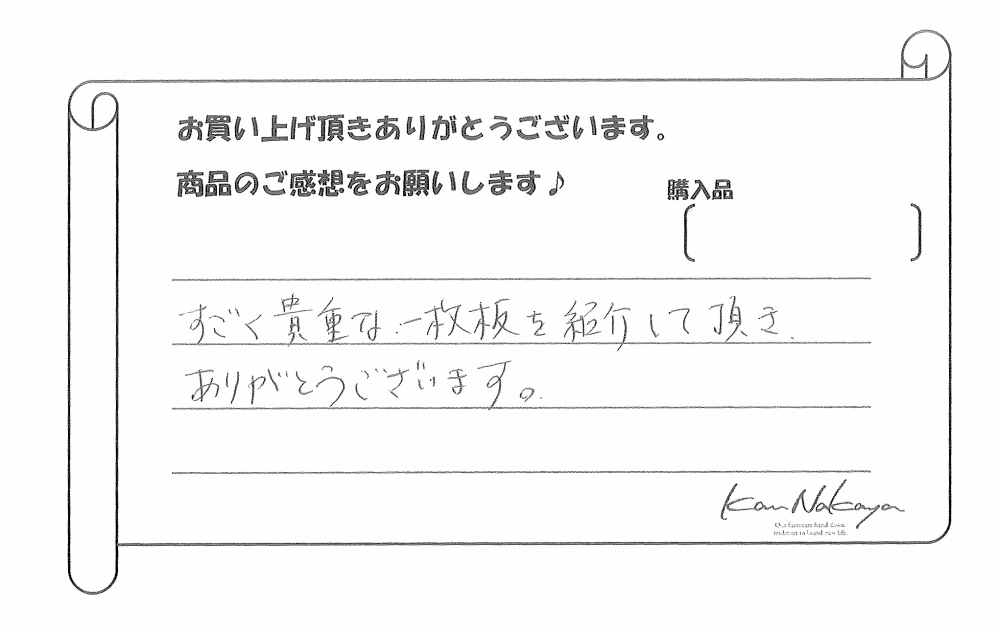 お買い上げ頂きありがとうございます。
商品のご感想をお願いします♪
購入品
すごく貴重な一枚板を紹介して頂き、
ありがとうございます。
Kan Nakaya
Our furniture hand down
tradition to brand new life.